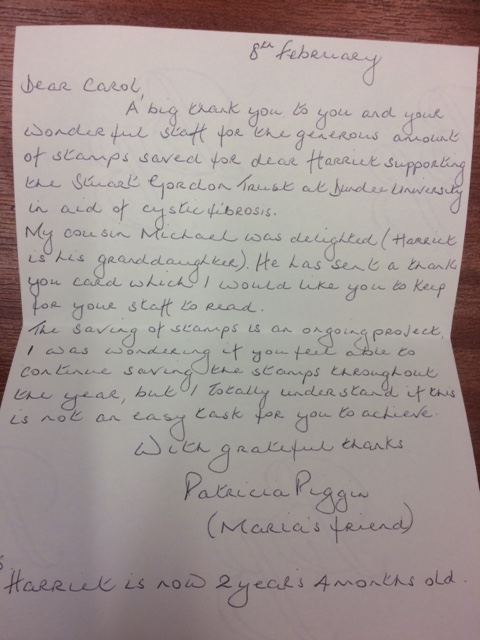 8th February
Dear Carol,
A big thank you to you and your
wonderful staff for the generous amount
of stamps saved for dear Harriet supporting
the Stuart Gordon Trust at Dundee University
in aid of cystic fibrosis.
My cousin Michael was delighted (Harriet
is his granddaughter). He has sent a thank
you card which I would like you to keep
for your staff to read.
The saving of stamps is an ongoing project,
I was wondering if you feel able to
continue saving the stamps throughout
the year, but I totally understand if this
is not an easy task for you to achieve.
With grateful thanks
Patricia Piggin
(Maria's friend)
Harriet is now 2 years 4 months old.